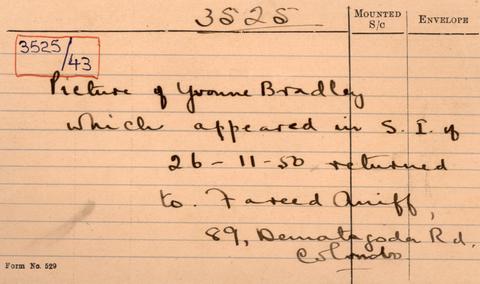 3525
MOUNTED
S/c
ENVELOPE
3525/43
Picture of Yvonne Bradley
which appeared in S. I. of
26-11-50 returned
to. Fareed Ariff,
89, Dematagoda Rd.
Colombo
Form No. 529